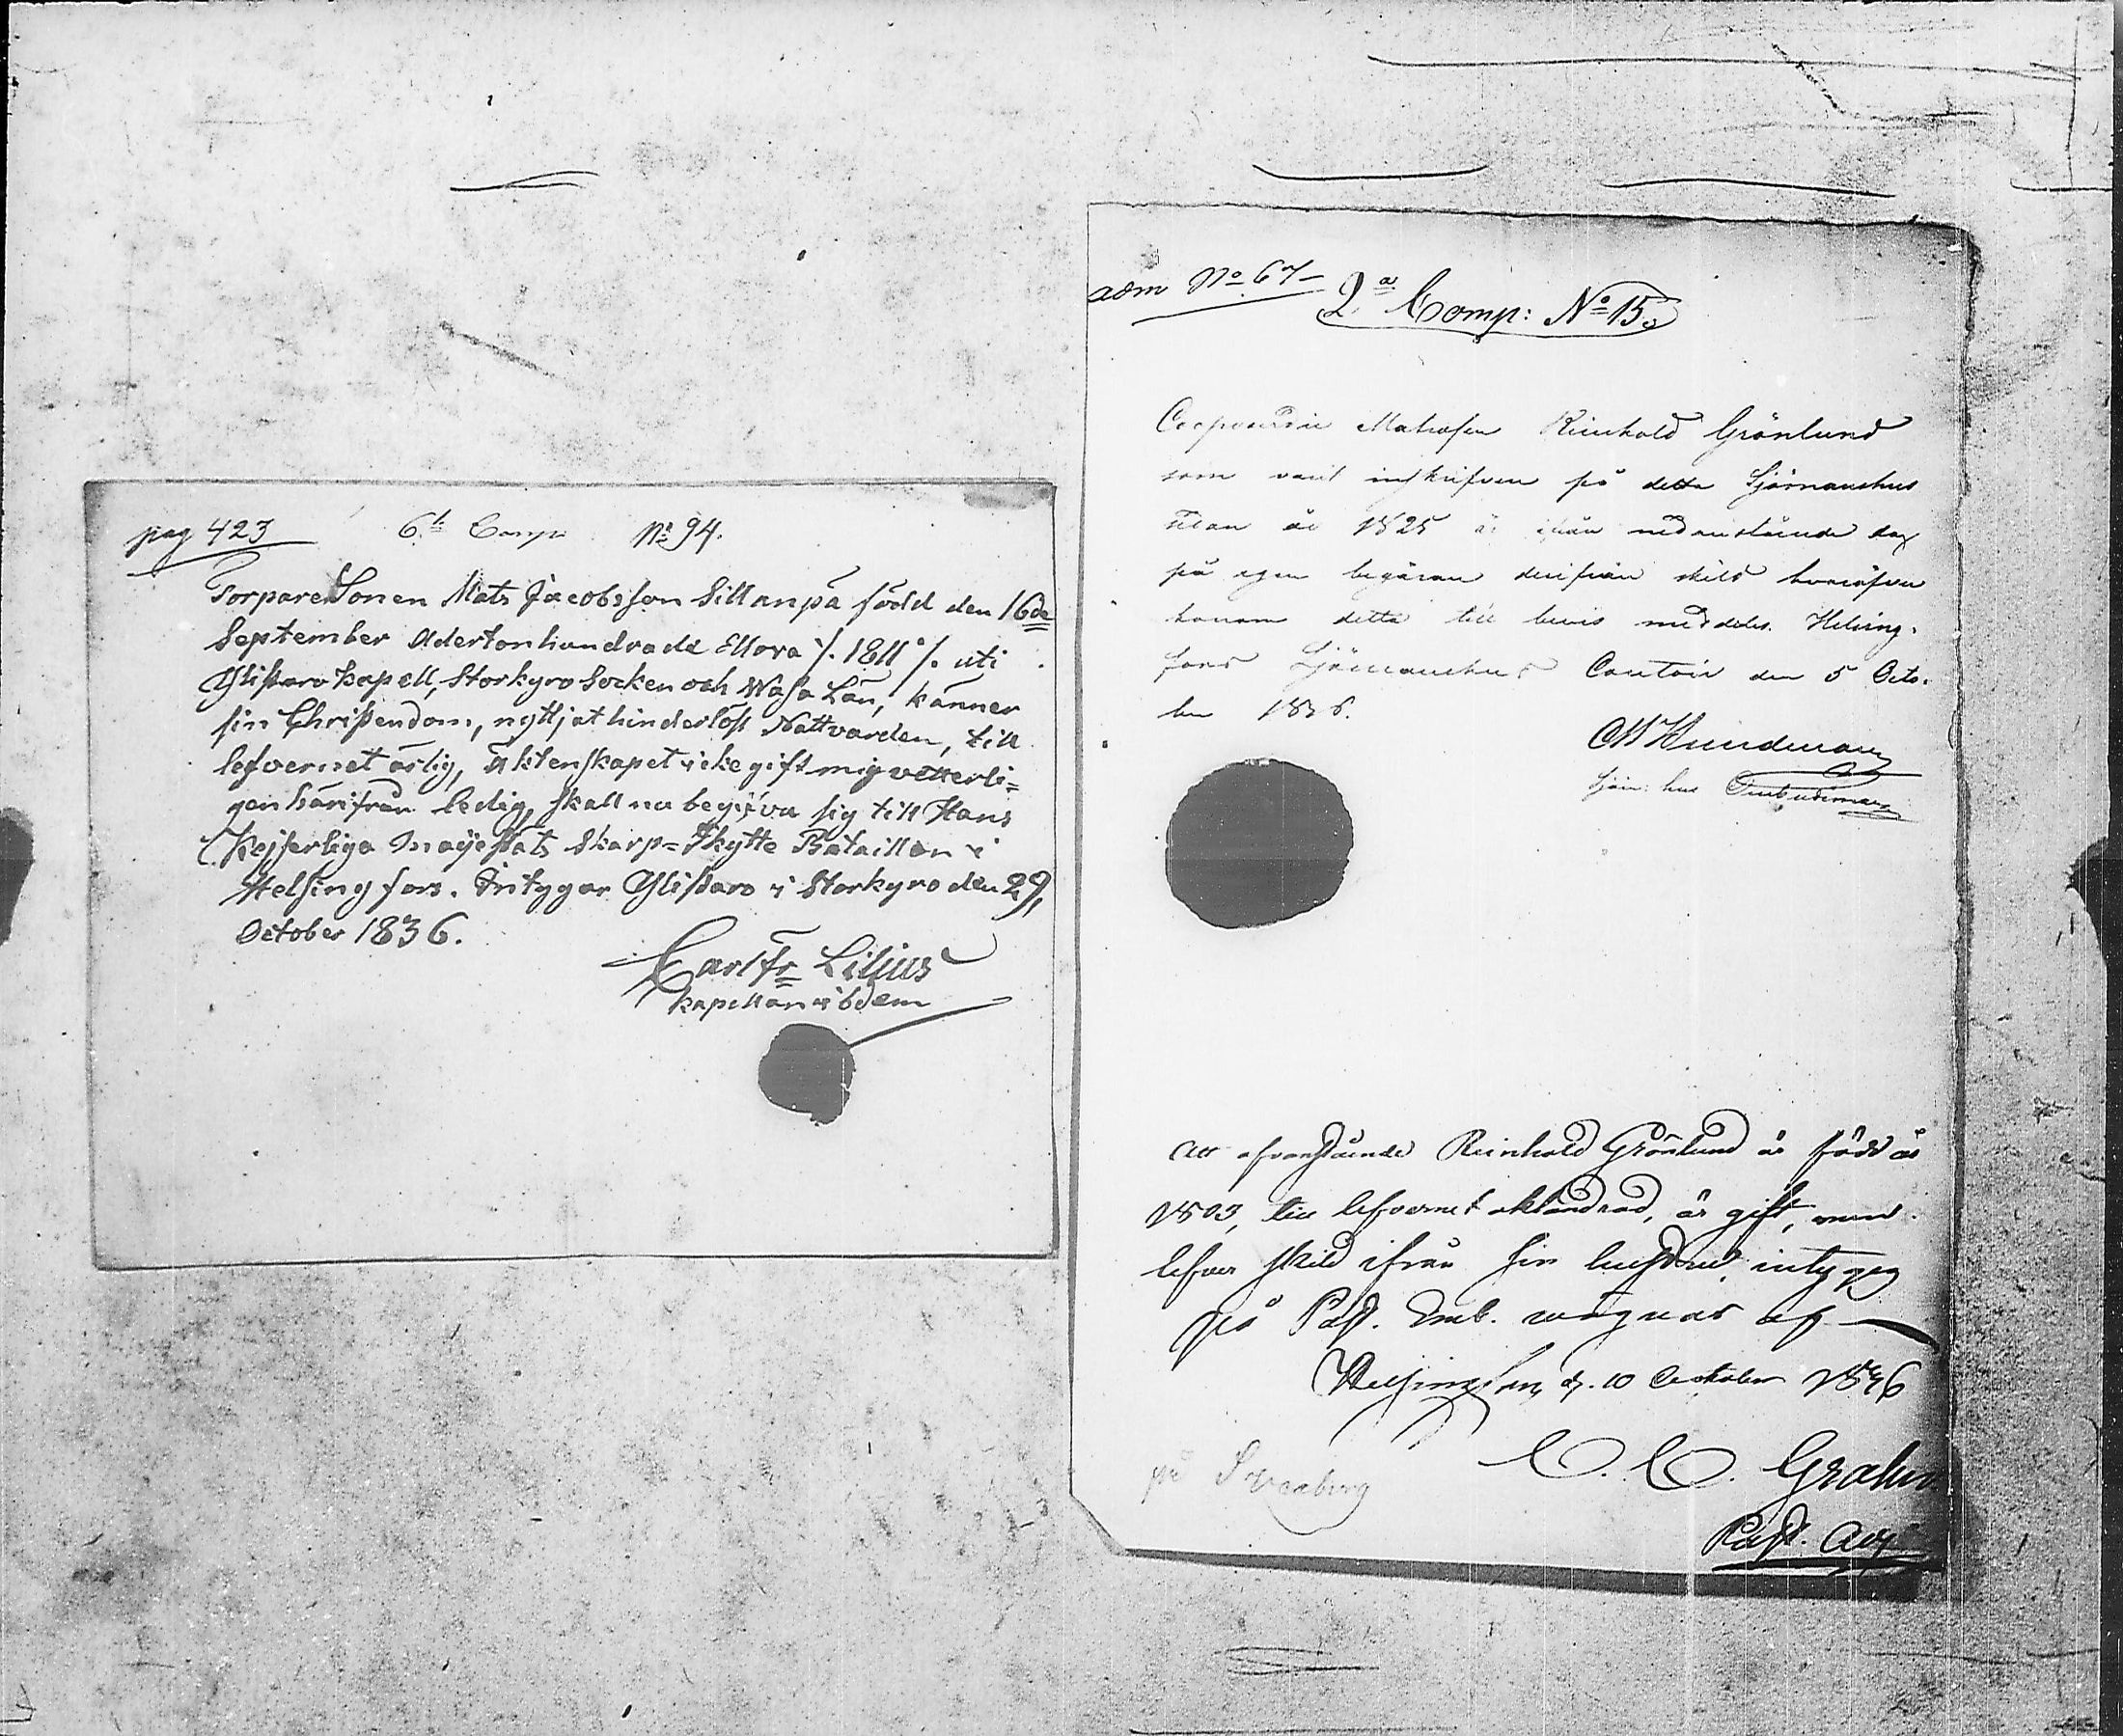 pag 423 6te Comp. No 94.
Torpare Sonen Mats Jacobsson Sillanpä född den 16de
September Adertonhundrade Ellova /. 1811 /. uti
Ylistaro kapell, Storkyro Socken och Wasa Län, känner
sin Christendom, nyttjat hinderlöst Nattvarden, till
lefvernet ärlig, äktenskapet icke gift mig vetterli=
gen härifrån ledig, skall nu begifva sig till Hans
Kejserliga Mayestäts Skarp=Skytte Bataillon i
Helsingfors. Intygar Ylistaro i Storkyro den 29,
October 1836.
Carl Fr Lilius
kapellan ibdem
adm No 67
2a Comp: No 15.
Matrosen Reinhold Grönlund
som varit inskrifven på detta Sjömanshus
sedan år 1825 är ifrån nedanstående dag
på egen begäran derifrån skild hvaröfver
honom detta till bevis meddeles. Helsing-
fors Sjömanshus Contoir den 5 Octo-
ber 1836.
Sjöm: hus Ombudsman
Att ofvanstående Reinhold Grönlund är född år
1803, till lefvernet oklandrad, är gift, men
lefver skild ifrån sin hustru, intygas
på Past. Emb. wägnar af
Helsingfors, d. 10 October 1836
C. C. Grahn
Past. Adj.
på Sveaborg